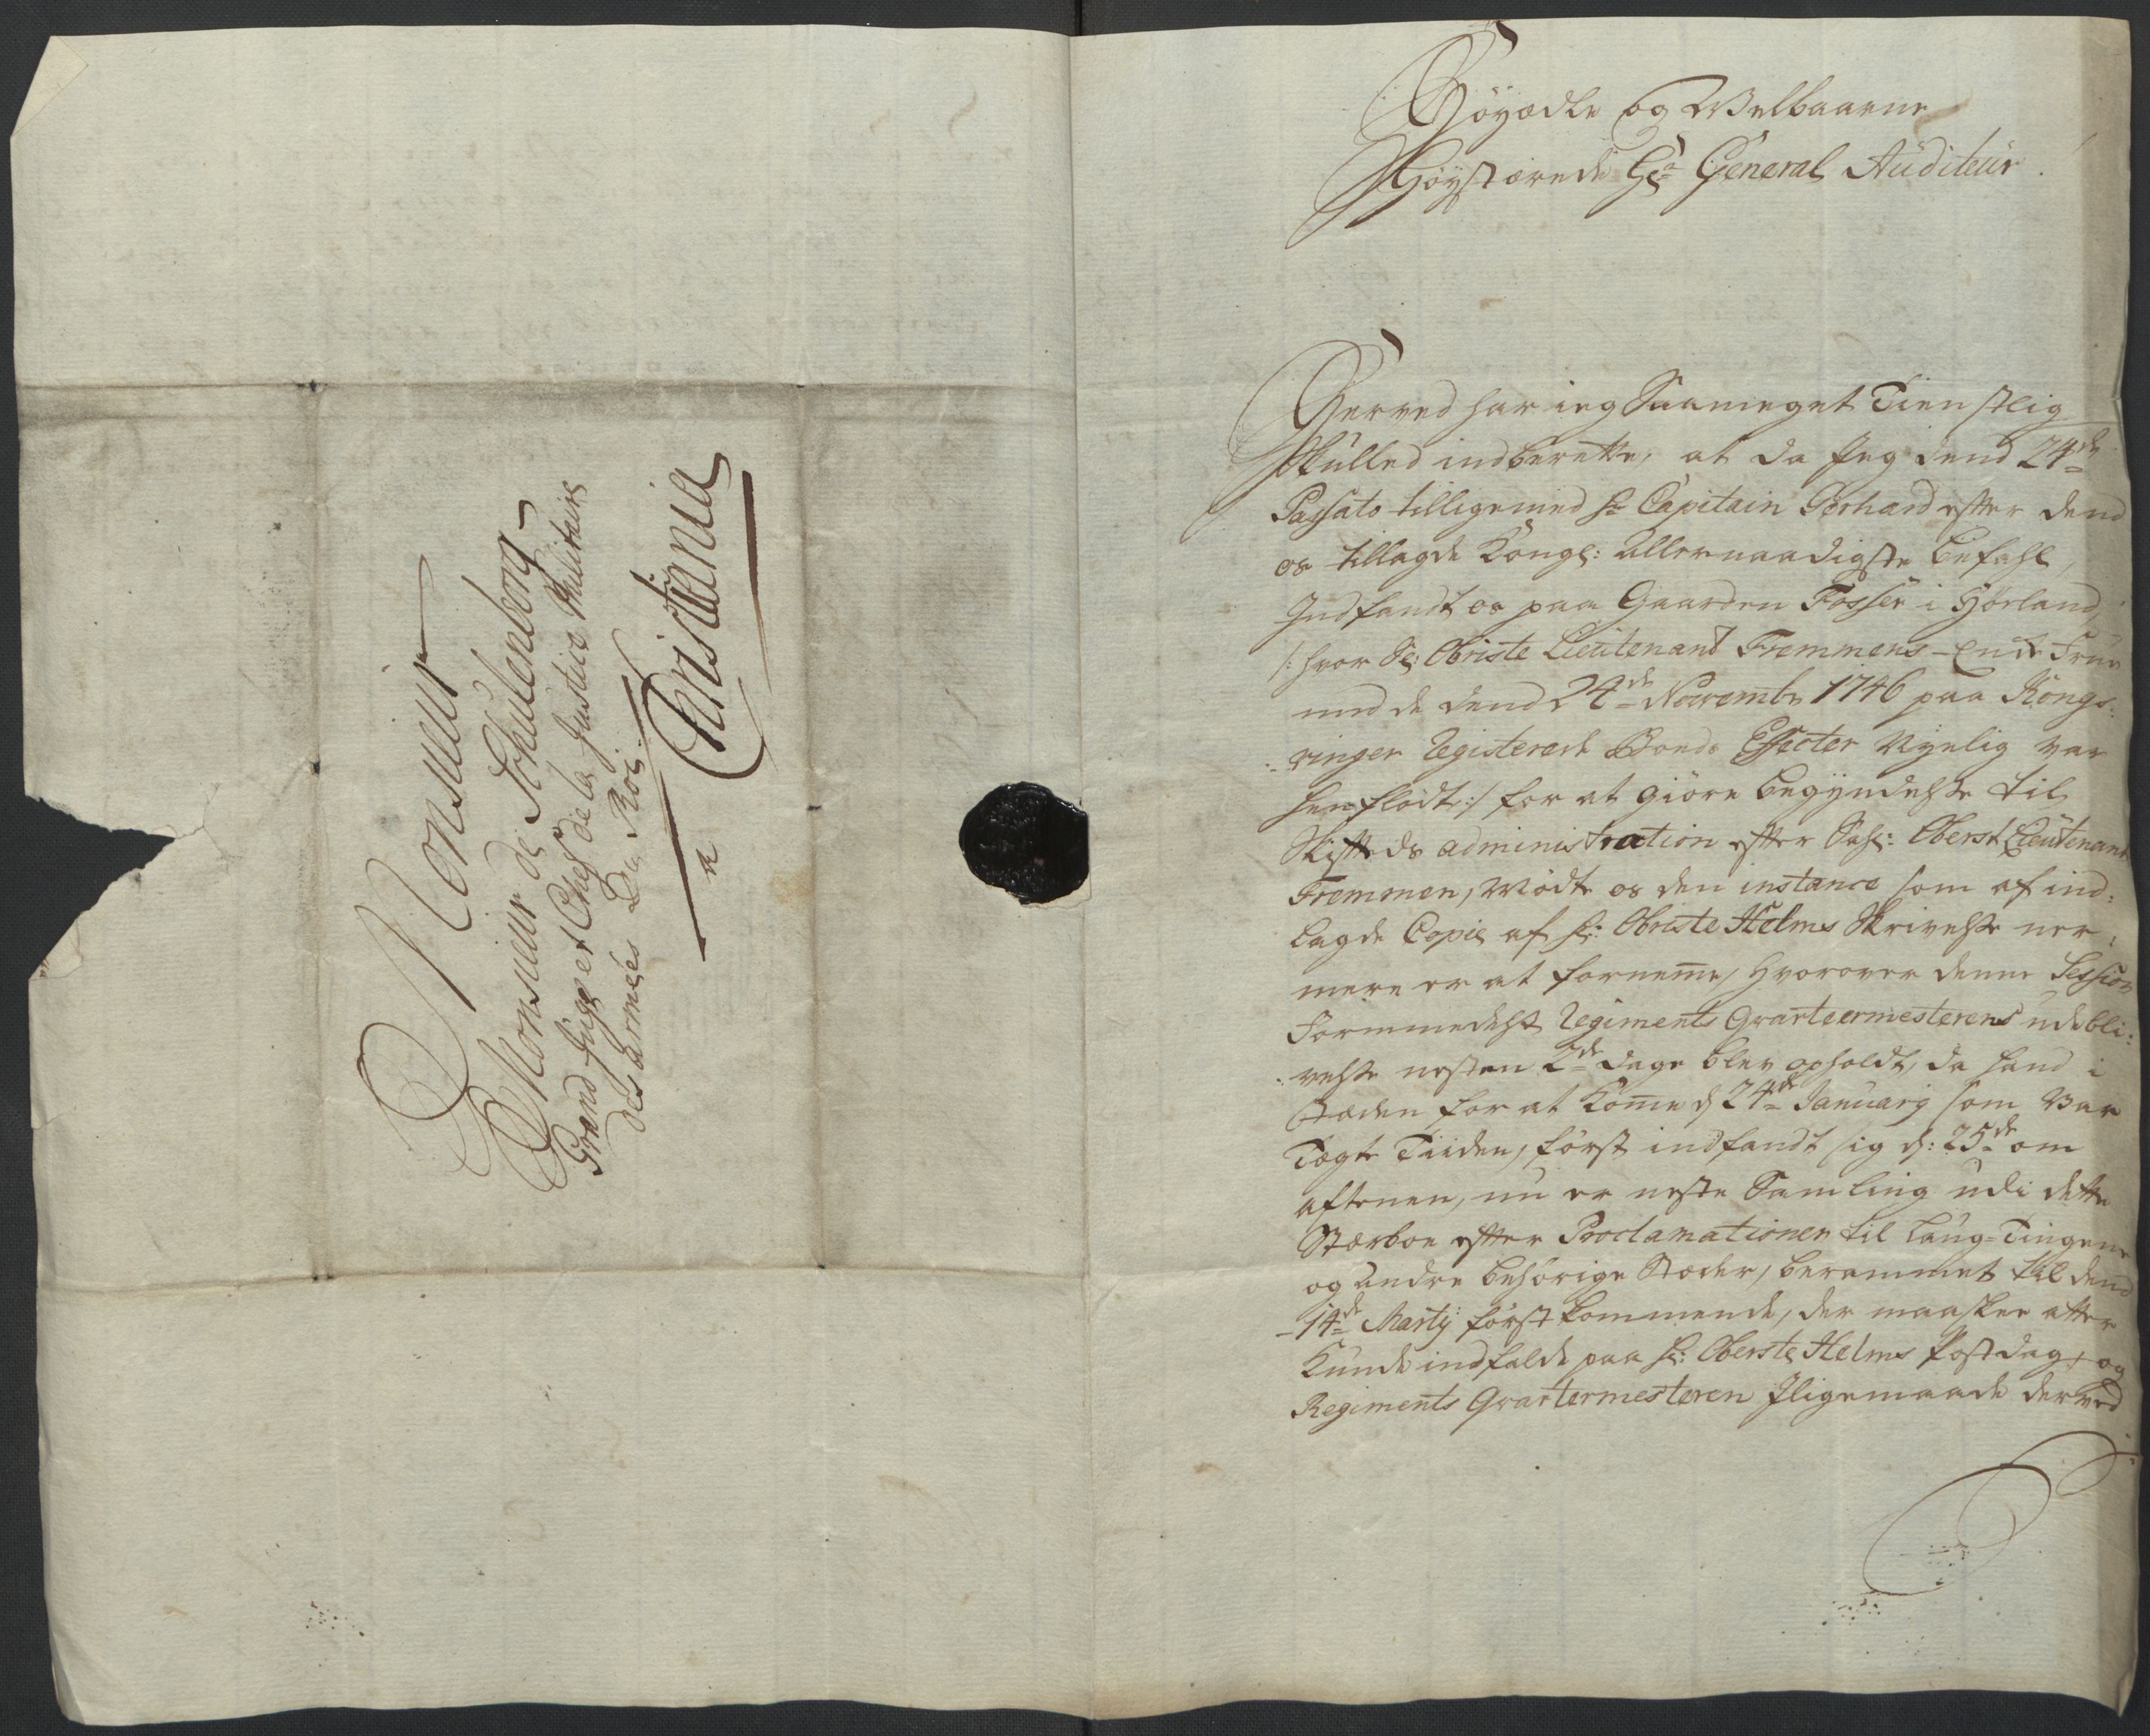 Monsieur
Monsieur de Schulenborg
Grand Juge et Chef de la Justice Millitaire
des armées Du Roi.
a
Christiania
Höyædle og Welbaarne
Höystærede Hr General Auditeur.
Herved har ieg Saameget Tienstlig
skulled indberette, at da Jeg dend 24de
Passato tilligemed Hr Capitain Gerhard efter dend
os tillagde Kongl: Allernaadigste Befahl,
Indfandt os paa Gaarden Fosser i Hörland,
/: hvor Sl: Obriste Lieutenant Fremmens Enke Frue
med de dend 24de Novembr 1746 paa Kongs:
:vinger Registerede Boends Effecter Nyelig var
henflödt :/ for at giöre begyndelse til
Skiftteds administration efter Sahl: Oberst Lieutenant
Fremmen, Mödte os den instance som af ind:
lagde Copie af Hr: Obriste Helms Skrivelse ner:
mere er at fornemme, Hvorover denne Session
formmedelst Regiments Qvarteermesterens udebli:
:velse nesten 2de dage blev opholdt, da hand i
Stæden for at Komme d 24de Januarij som Var
Tægte Tiiden, först indfandt sig d: 25de om
aftenen, nu er neste Samling udi dette
Stærboe efter Proclamationen til Laug-Tingene
og andre behörige Stæder, berammet til dend
14de Martij förstkommende, der maaskee atter
Kunde indfalde paa Hr: Oberste Helms Postdag, og
Regiments Qvartermesteren Jligemaade derved